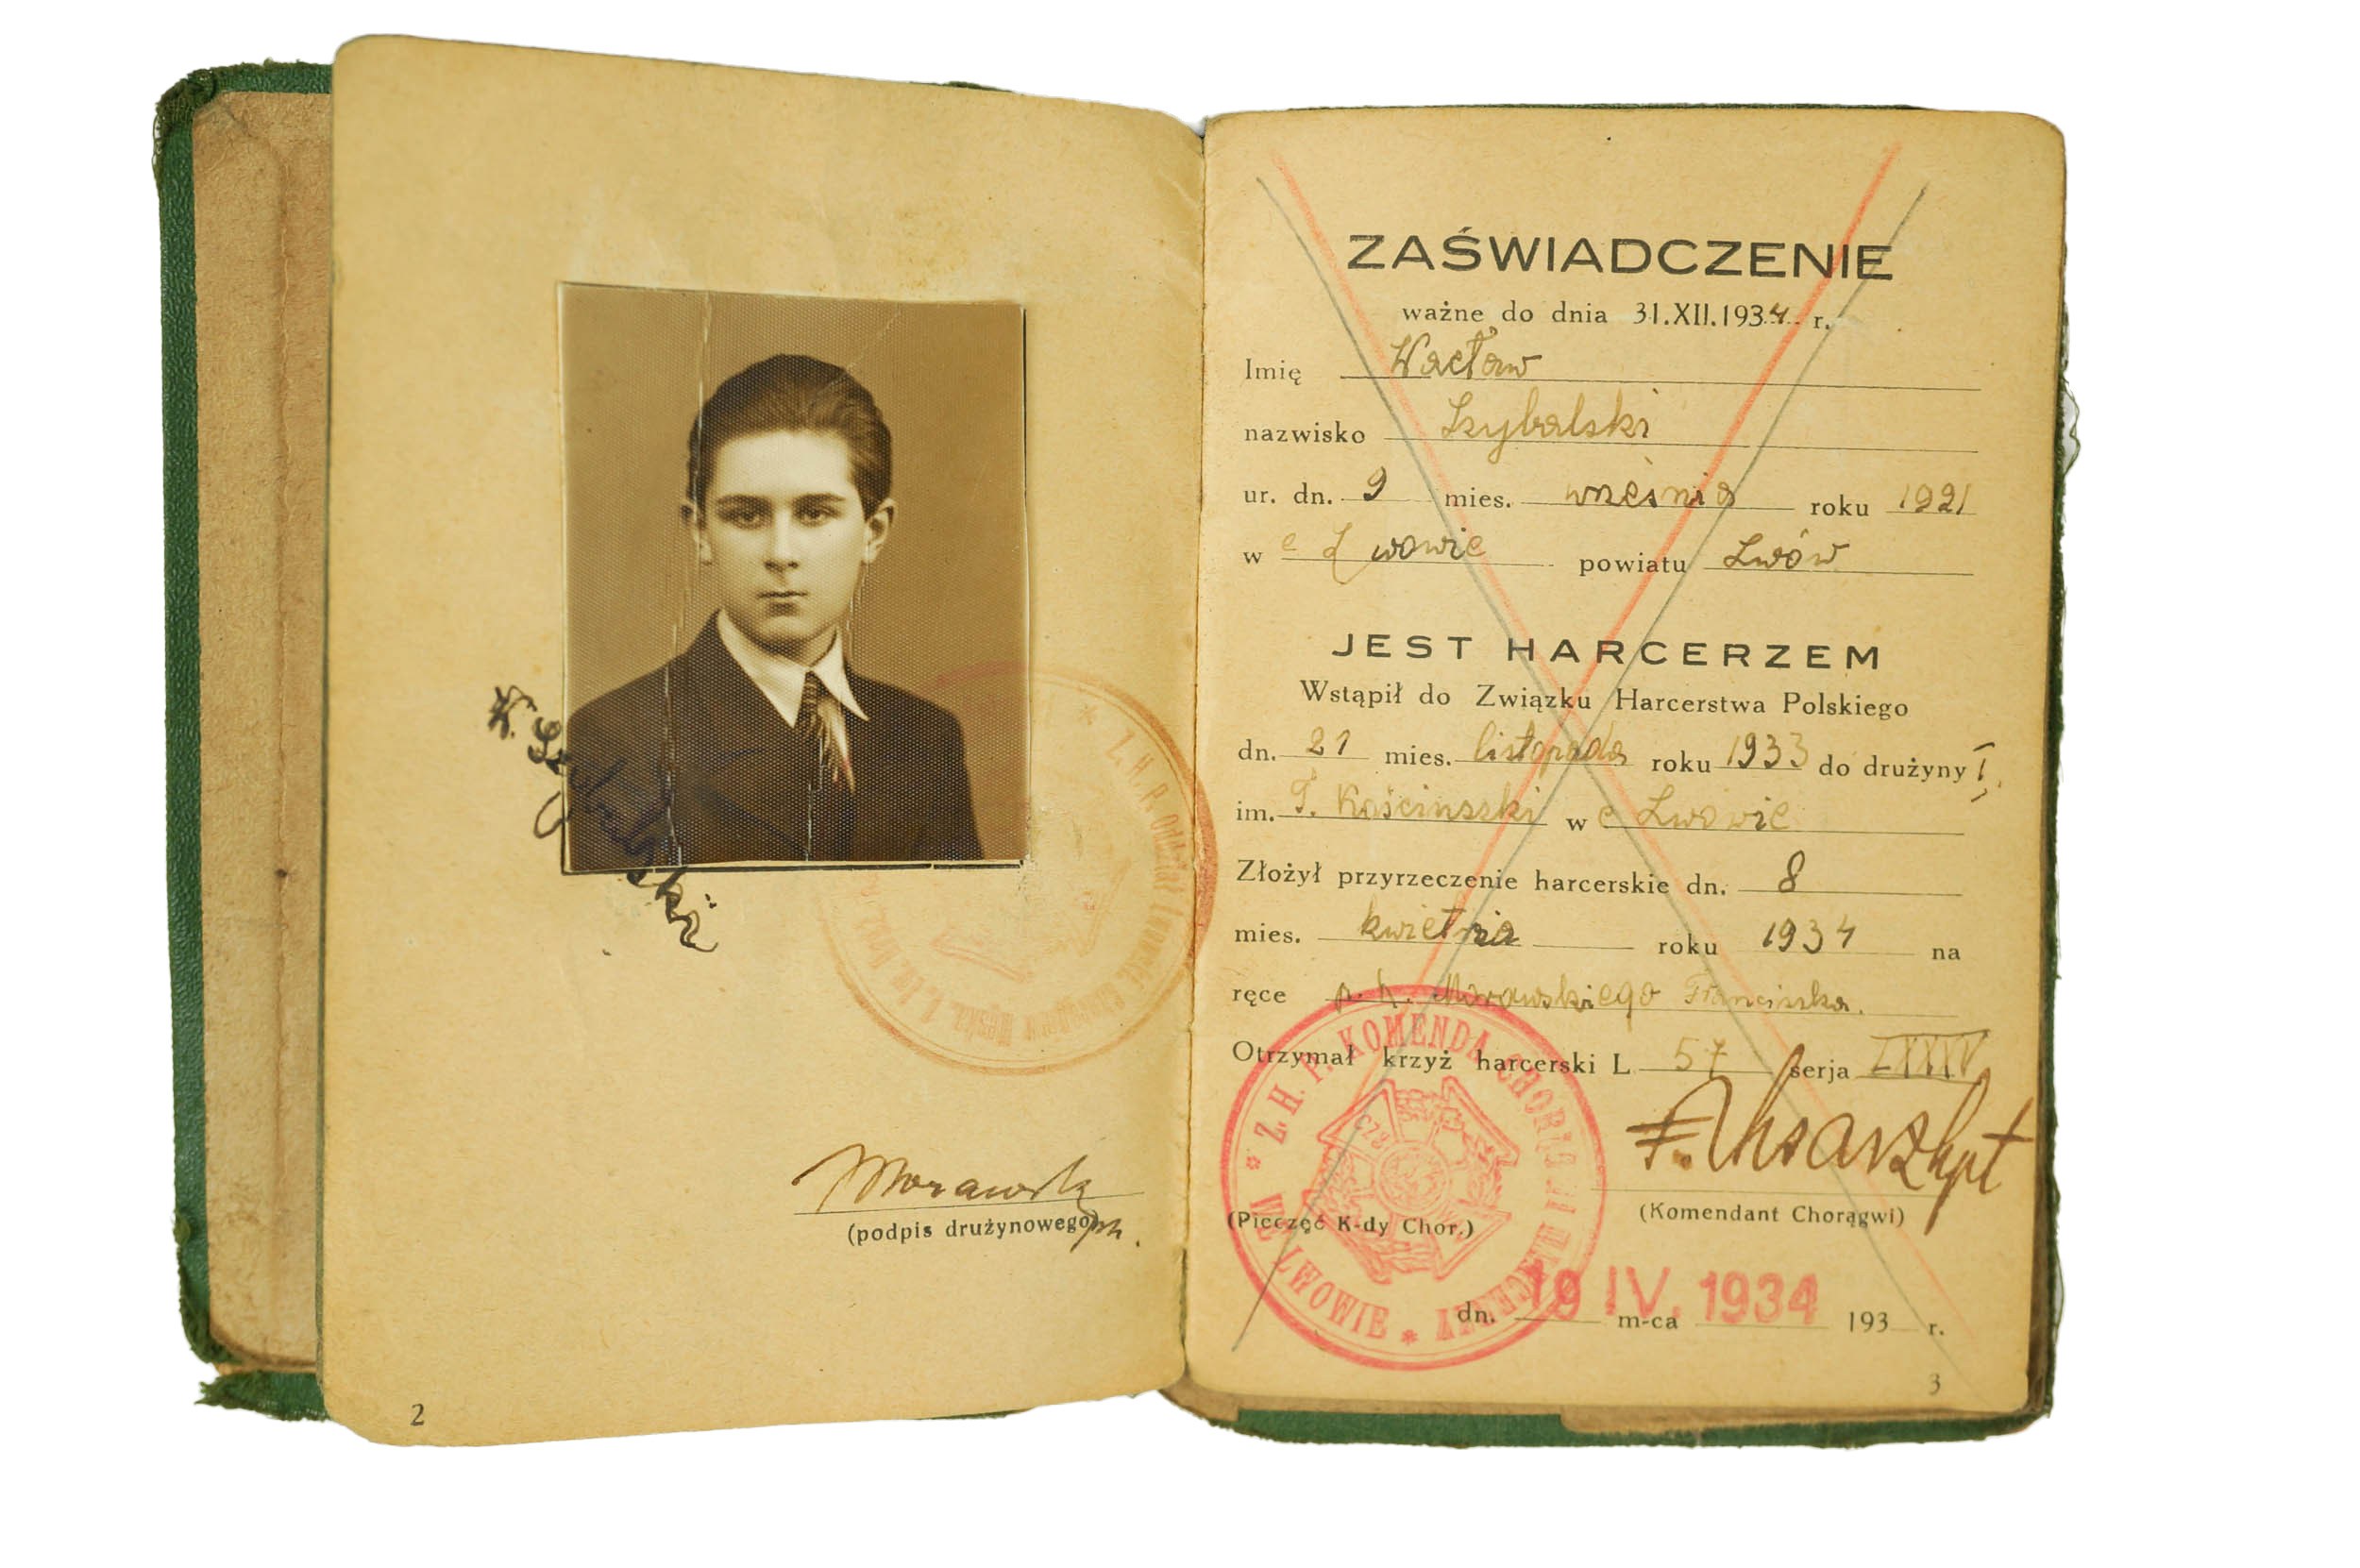 W. Szybalski
Morawski
(podpis drużynowego) ph.
2
ZAŚWIADCZENIE
ważne do dnia 31.XII.1934 r.
Imię Wacław
nazwisko Szybalski
ur. dn. 9 mies. września roku 1921
w e Lwowie powiatu Lwów
JEST HARCERZEM
Wstąpił do Związku Harcerstwa Polskiego
dn. 21 mies. listopada roku 1933 do drużyny I,
im. T. Kościuszki w e Lwowie
Złożył przyrzeczenie harcerskie dn. 8
mies. kwietnia roku 1934 na
ręce p. h. Morawskiego Franciszka.
Otrzymał krzyż harcerski L 57 serja LXXXV
(Pieczęć K-dy Chor.)
(Komendant Chorągwi)
Z.H.P. KOMENDA CHORĄGWI HARCERZY * WE LWOWIE *
dn. 19 IV. m-ca 1934 193 r.
3